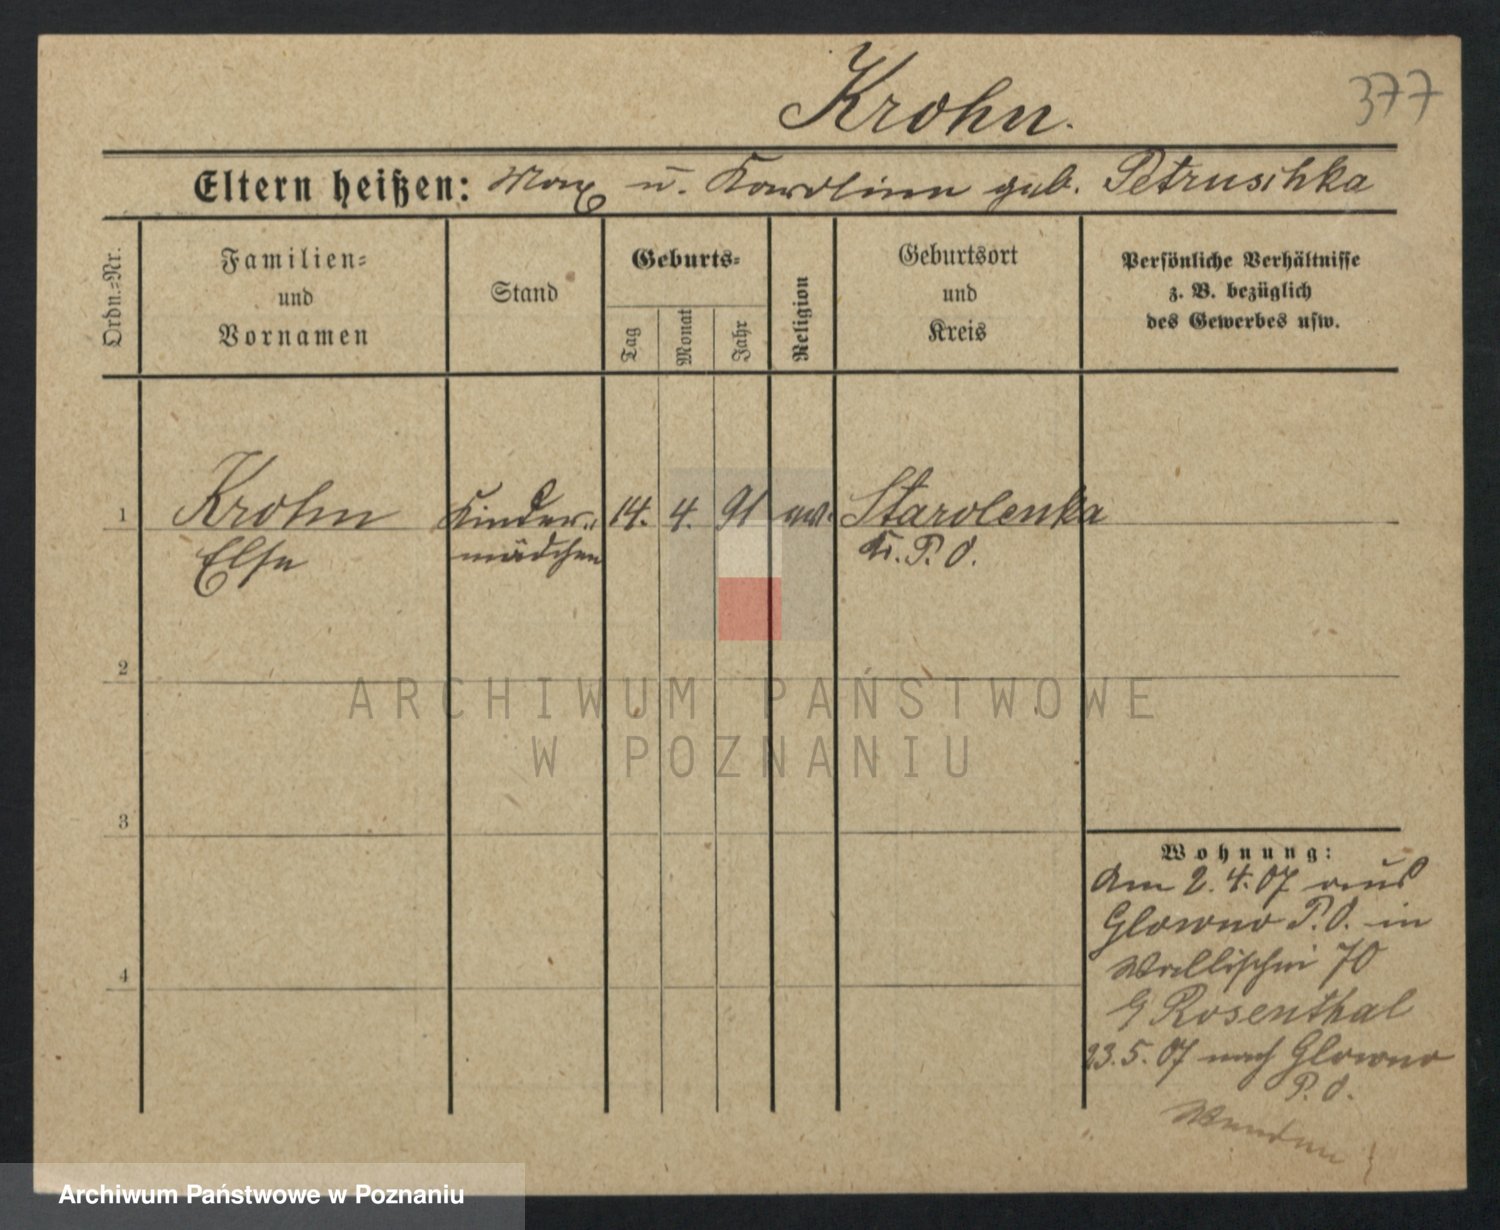 Krohn.
377
Eltern heißen: Max u. Karoline geb. Petruschka
Ordn.=Nr.
Familien=
und
Vornamen
Stand
Geburts=
Tag
Monat
Jahr
Religion
Geburtsort
und
Kreis
Persönliche Verhältnisse
z. B. bezüglich
des Gewerbes usw.
1
Krohn
Else
Kinder=
mädchen
14.
4.
91
ev.
Starolenka
Kr. P. O.
2
3
4
ARCHIWUM PAŃSTWOWE
W POZNANIU
Wohnung:
Am 2.4.07 aus
Glowno P.O. in
Wallischei 70
Rosenthal
23.5.07 nach Glowno
P. O.
Wenden !
Archiwum Państwowe w Poznaniu